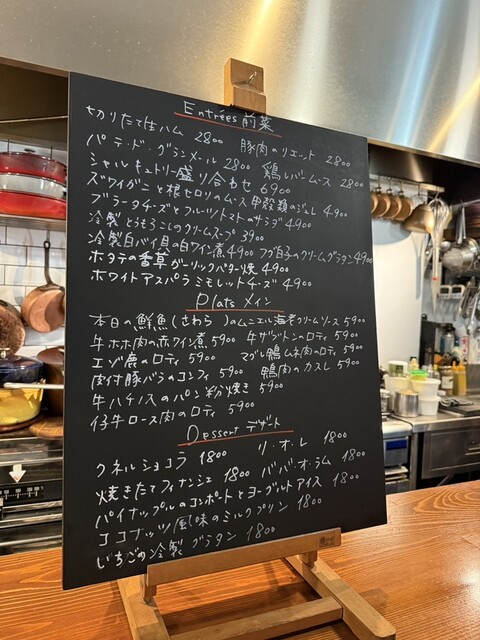 Entrées 前菜
切りたて生ハム 2800 豚肉のリエット 2800
パテ・ド・グランメール 2800 鶏レバームース 2800
シャルキュトリー盛り合わせ 6900
ズワイガニと根セロリのムース 甲殻類のジュレ 4900
ブラータチーズとフルーツトマトのサラダ 4900
冷製とうもろこしのクリームスープ 3900
冷製白バイ貝の白ワイン煮 4900 フグ白子のクリームグラタン 4900
ホタテの香草ガーリックバター焼 4900
ホワイトアスパラ ミモレットチーズ 4900
Plats メイン
本日の鮮魚(さわら )のムニエル海老クリームソース 5900
牛ホホ肉の赤ワイン煮 5900 牛ザブトンのロティ 5900
エゾ鹿のロティ 5900 マグレ鴨ムネ肉のロティ 5900
肉付豚バラのコンフィ 5900 鴨肉のカスレ 5900
牛ハチノスのパン粉焼き 5900
仔牛ロース肉のロティ 5900
Dessert デザート
クネルショコラ 1800 リ・オ・レ 1800
焼きたてフィナンシェ 1800 ババ・オ・ラム 1800
パイナップルのコンポートとヨーグルトアイス 1800
ココナッツ風味のミルクプリン 1800
いちごの冷製グラタン 1800